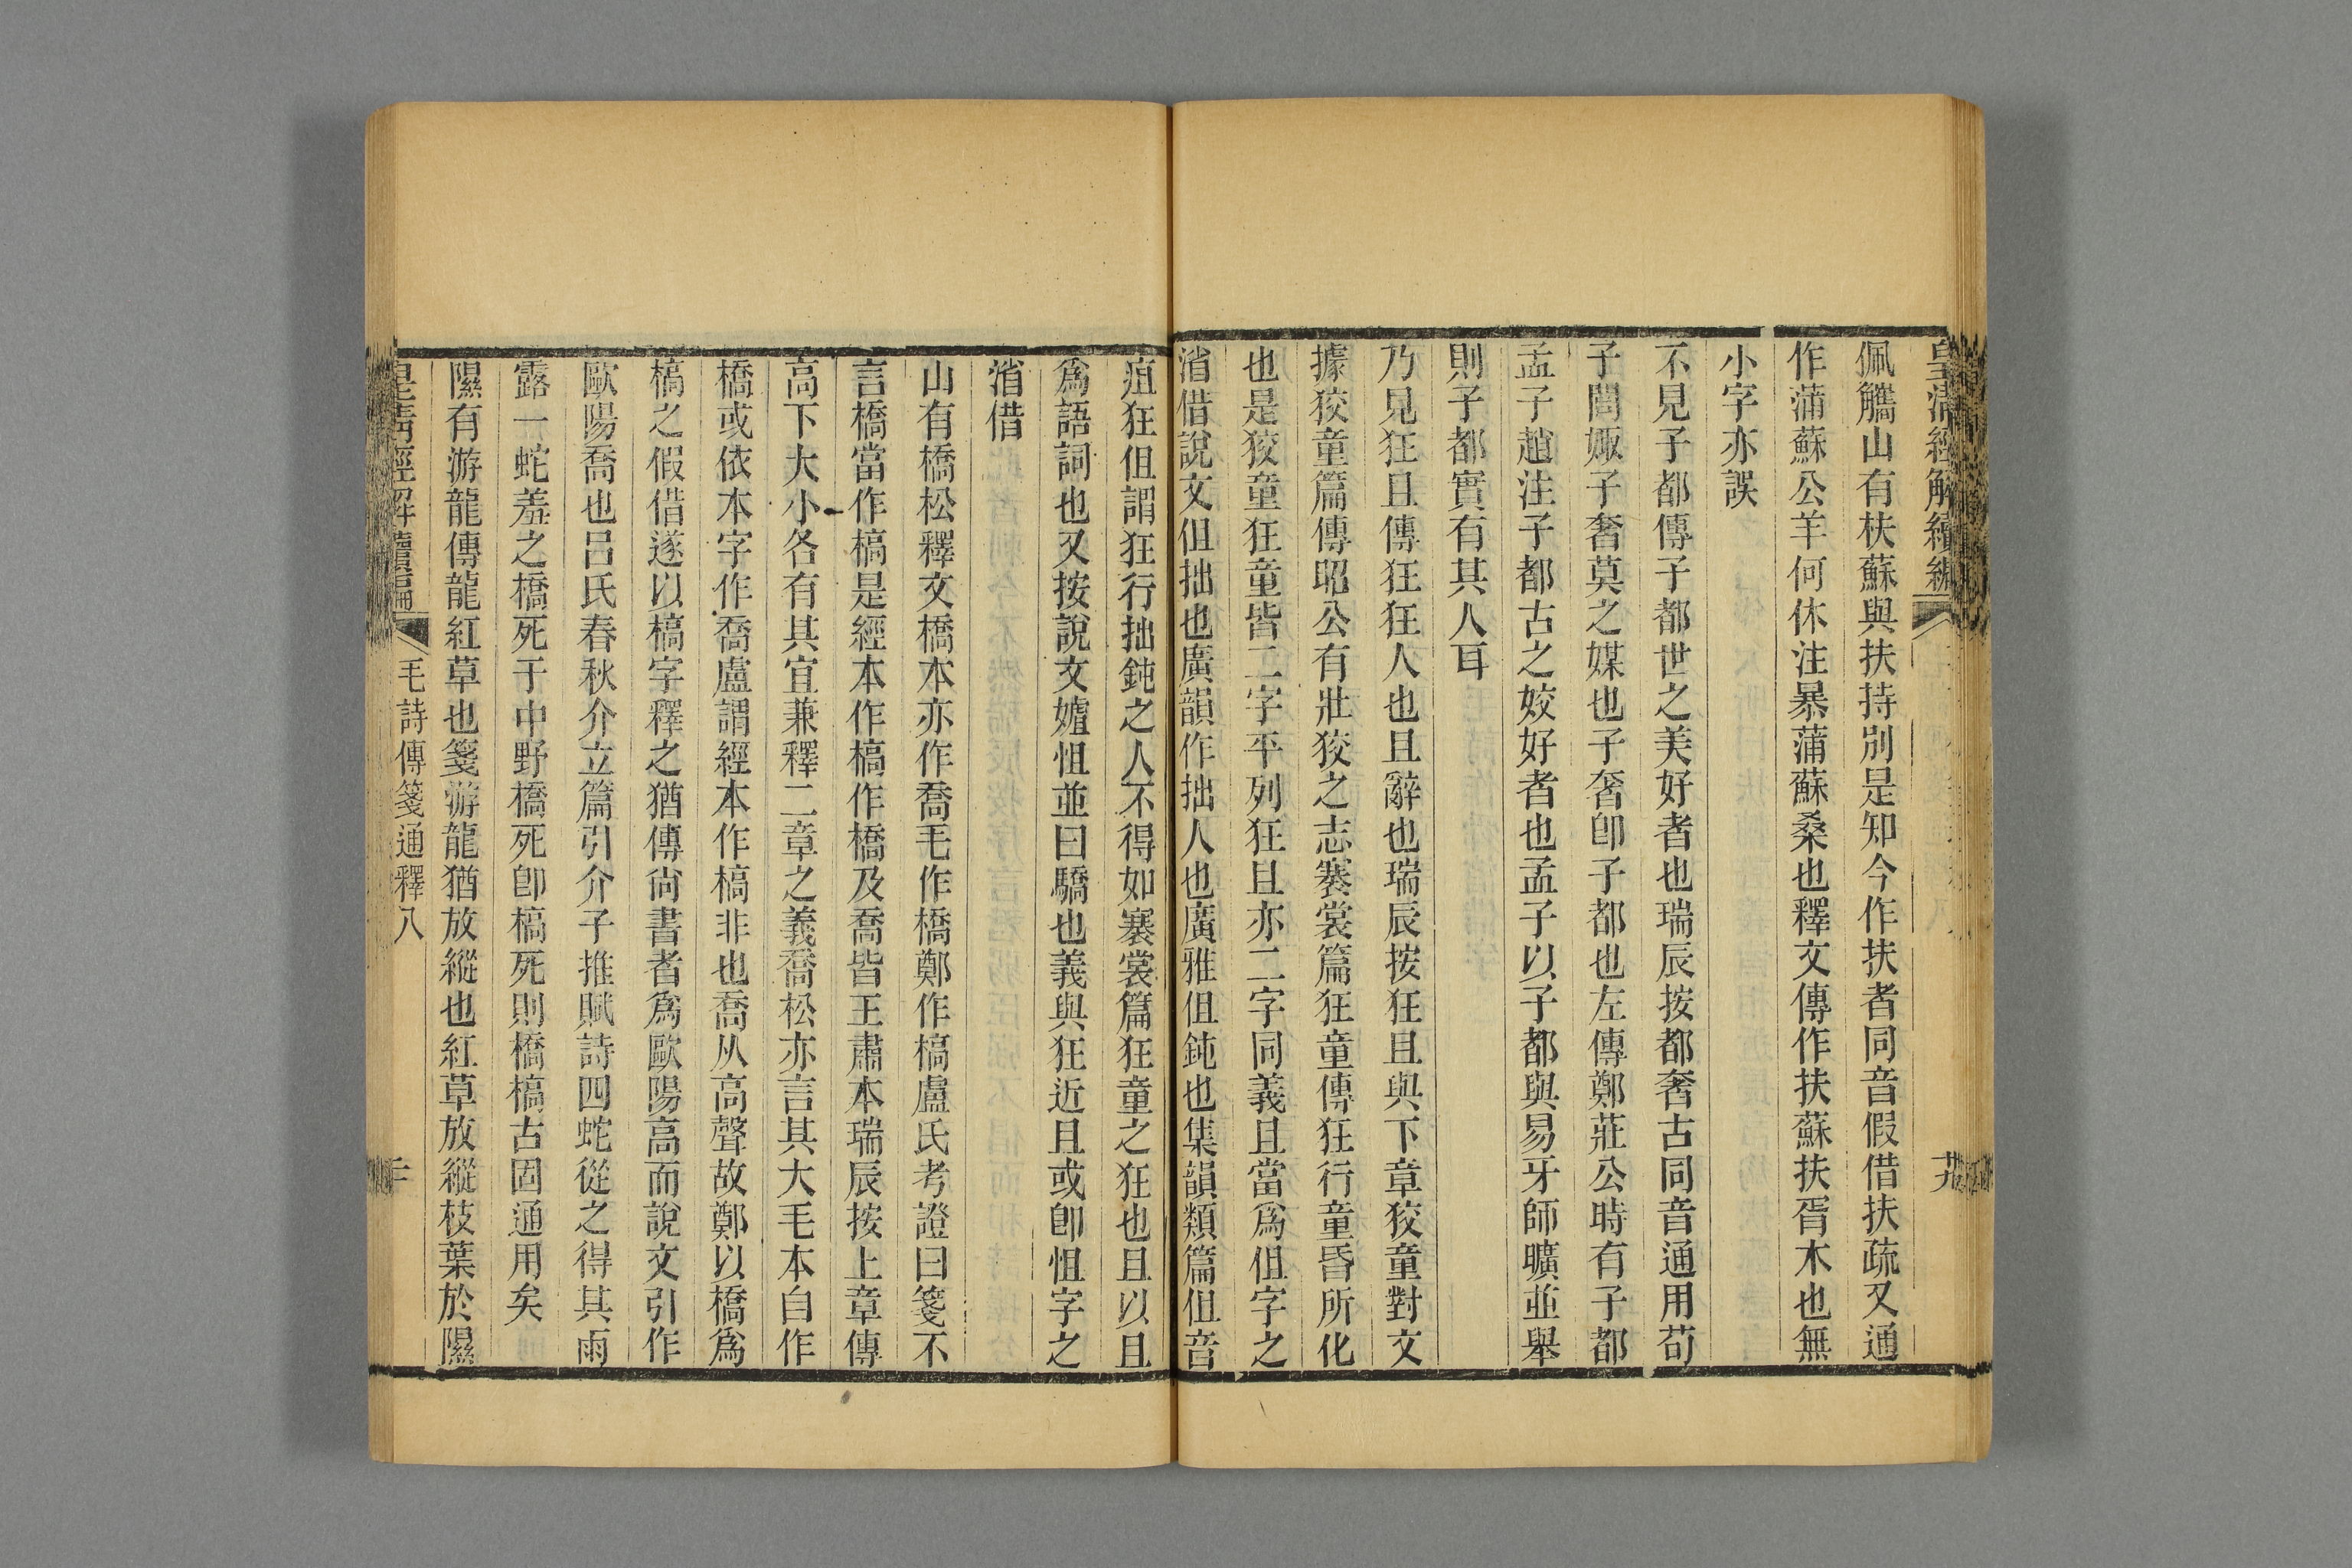 皇清經解續編
十九
佩觿山有枎蘇與扶持別是知今作扶者同音假借扶疏又通
作蒲蘇公羊何休注暴蒲蘇桑也釋文傳作扶蘇扶胥木也無
小字亦誤
不見子都傳子都世之美好者也瑞辰按都奢古同音通用荀
子閭娵子奢莫之媒也子奢卽子都也左傳鄭莊公時有子都
孟子趙注子都古之姣好者也孟子以子都與易牙師曠並舉
則子都實有其人耳
乃見狂且傳狂狂人也且辭也瑞辰按狂且與下章狡童對文
據狡童篇傳昭公有壯狡之志褰裳篇狂童傳狂行童昏所化
也是狡童狂童皆二字平列狂且亦二字同義且當爲伹字之
渻借說文伹拙也廣韻作拙人也廣雅伹鈍也集韻類篇伹音
疽狂伹謂狂行拙鈍之人不得如褰裳篇狂童之狂也且以且
爲語詞也又按說文嫭怚並曰驕也義與狂近且或卽怚字之
渻借
山有橋松釋文橋本亦作喬毛作橋鄭作槁盧氏考證曰箋不
言橋當作槁是經本作槁作橋及喬皆王肅本瑞辰按上章傳
高下大小各有其宜兼釋二章之義喬松亦言其大毛本自作
橋或依本字作喬盧謂經本作槁非也喬从高聲故鄭以橋爲
槁之假借遂以槁字釋之猶傳尙書者爲歐陽高而說文引作
歐陽喬也呂氏春秋介立篇引介子推賦詩四蛇從之得其雨
露一蛇羞之橋死于中野橋死卽槁死則橋槁古固通用矣
隰有游龍傳龍紅草也箋游龍猶放縱也紅草放縱枝葉於隰
皇清經解續編
毛詩傳箋通釋八
二十